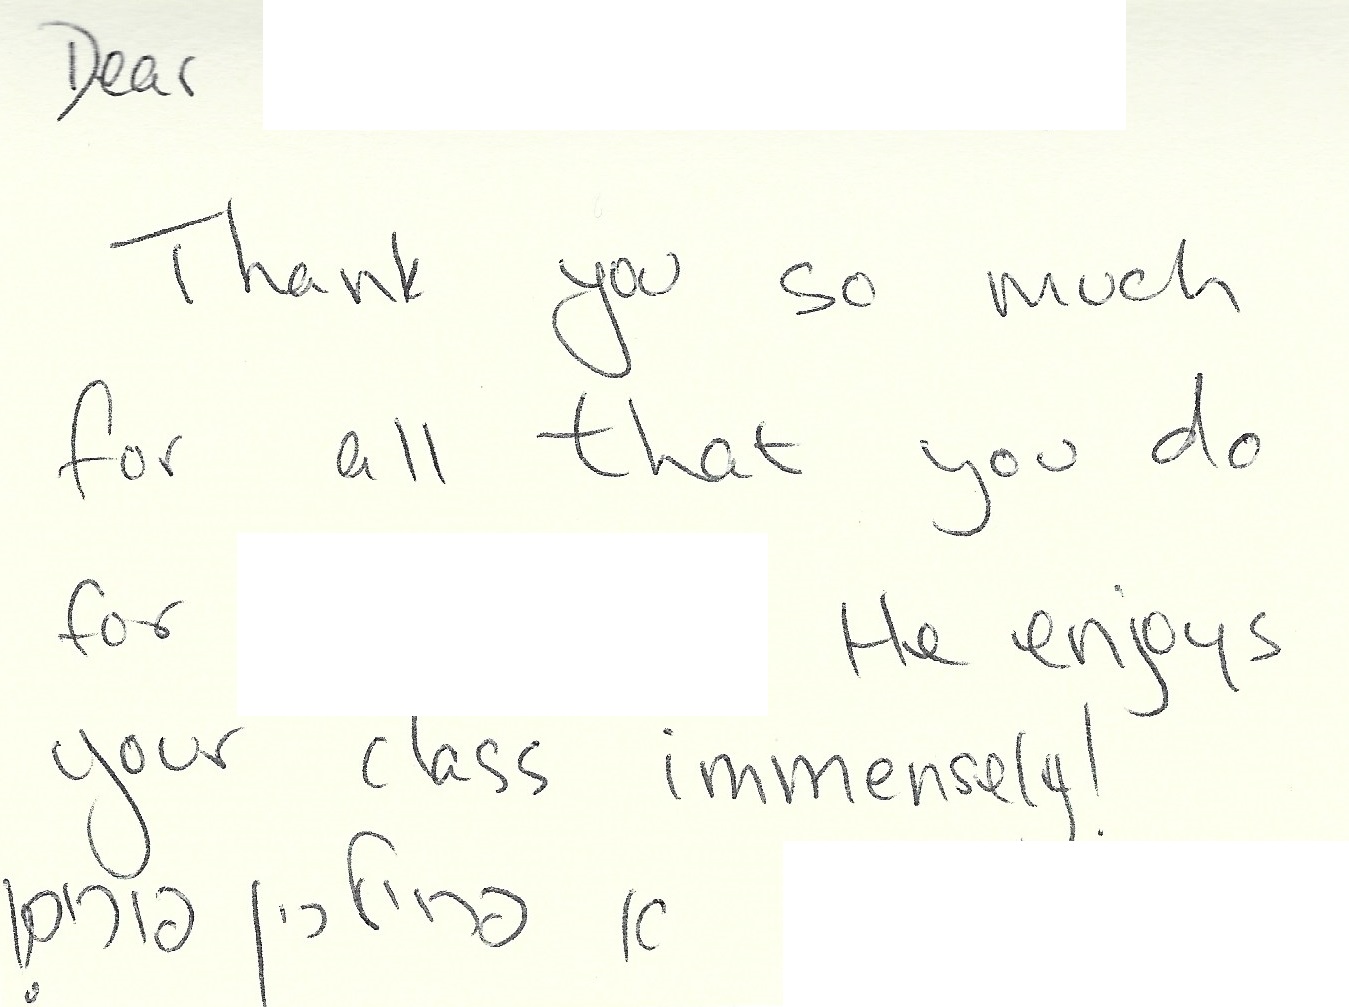 Dear
Thank you so much
for all that you do
for He enjoys
your class immensely!
א פריילכין פורים!